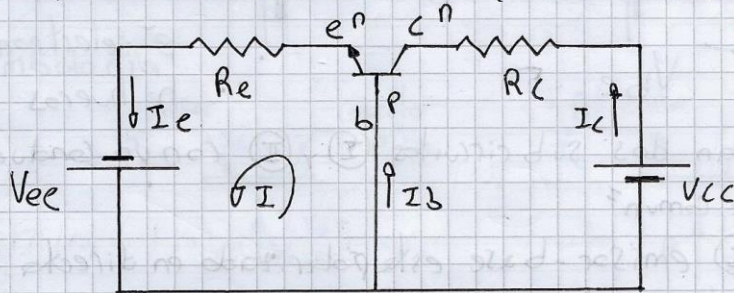 e n c n
Re P Rc
b
Ie Ic
Vee I Ib Vcc